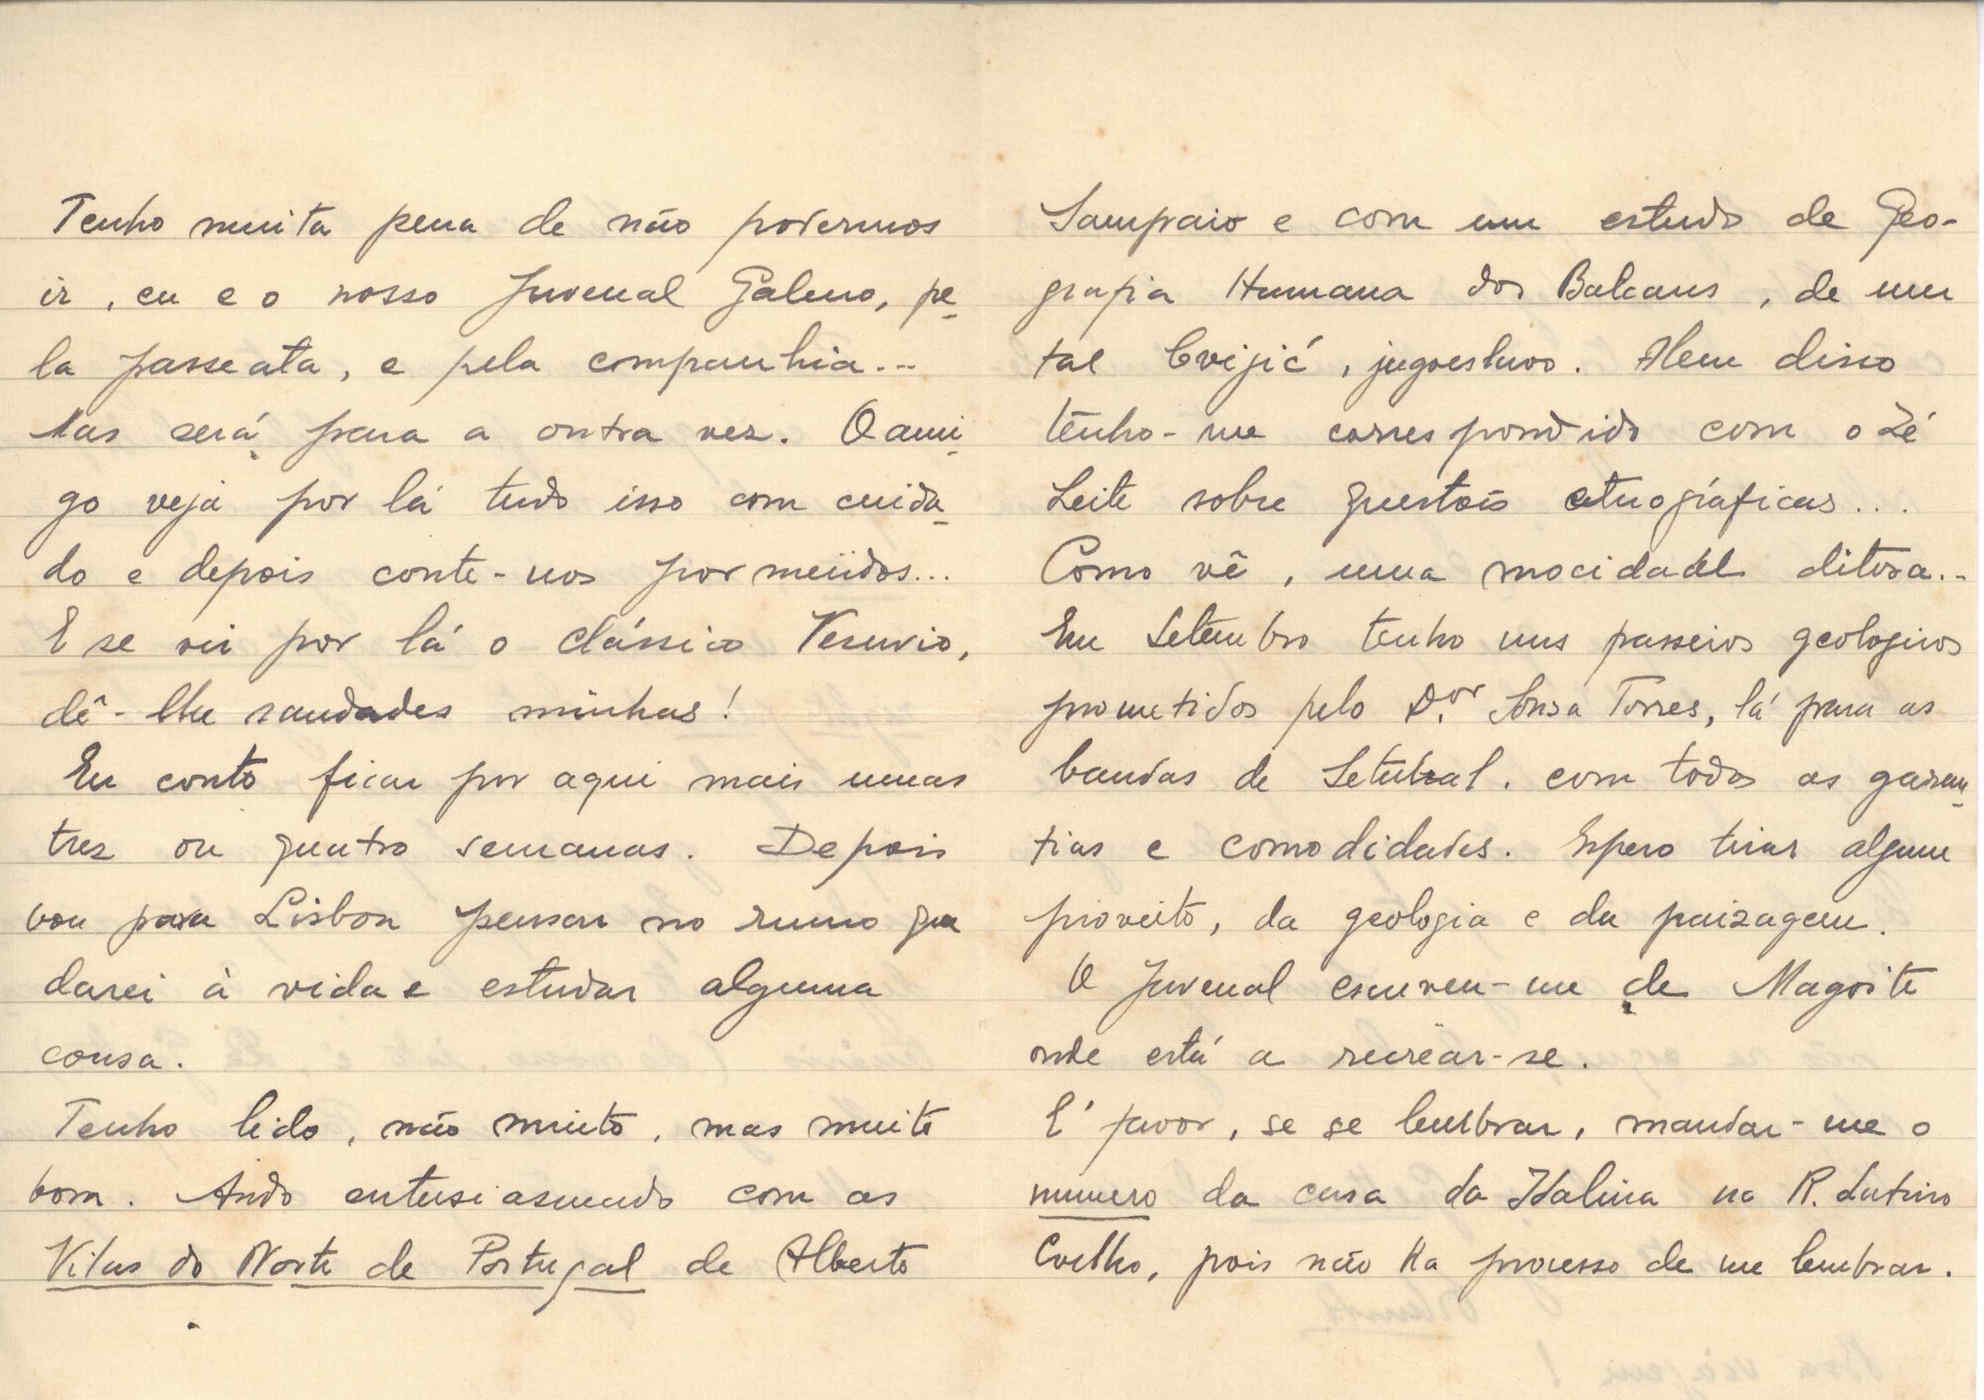 Tenho muita pena de não podermos
ir, eu e o nosso Juvenal Galeno, pe-
la passeata, e pela companhia...
Mas será para a outra vez. O ami-
go veja por lá tudo isso com cuida-
do e depois conte-nos por meúdos...
E se vir por lá o clássico Vesuvio,
dê-lhe saudades minhas!
Eu conto ficar por aqui mais umas
tres ou quatro semanas. Depois
vou para Lisboa pensar no rumo que
darei à vida e estudar alguma
cousa.
Tenho lido, não muito, mas muito
bom. Ando entusiasmado com as
Vilas do Norte de Portugal de Alberto
Sampaio e com um estudo de Geo-
grafia Humana dos Balcans, de um
tal Cvijić, jugoeslavo. Alem disso
tenho-me correspondido com o Zé
Leite sobre questois etnográficas...
Como vê, uma mocidade ditosa...
Em Setembro tenho uns passeios geologicos
prometidos pelo D.or Sousa Torres, lá para as
bandas de Setubal. com todas as garan-
tias e comodidades. Espero tirar algum
proveito, da geologia e da paizagem.
O Juvenal escreveu-me de Magoito
onde está a recrear-se.
E' favor, se se lembrar, mandar-me o
numero da casa da Idalina na R. Latino
Coelho, pois não ha processo de me lembrar.